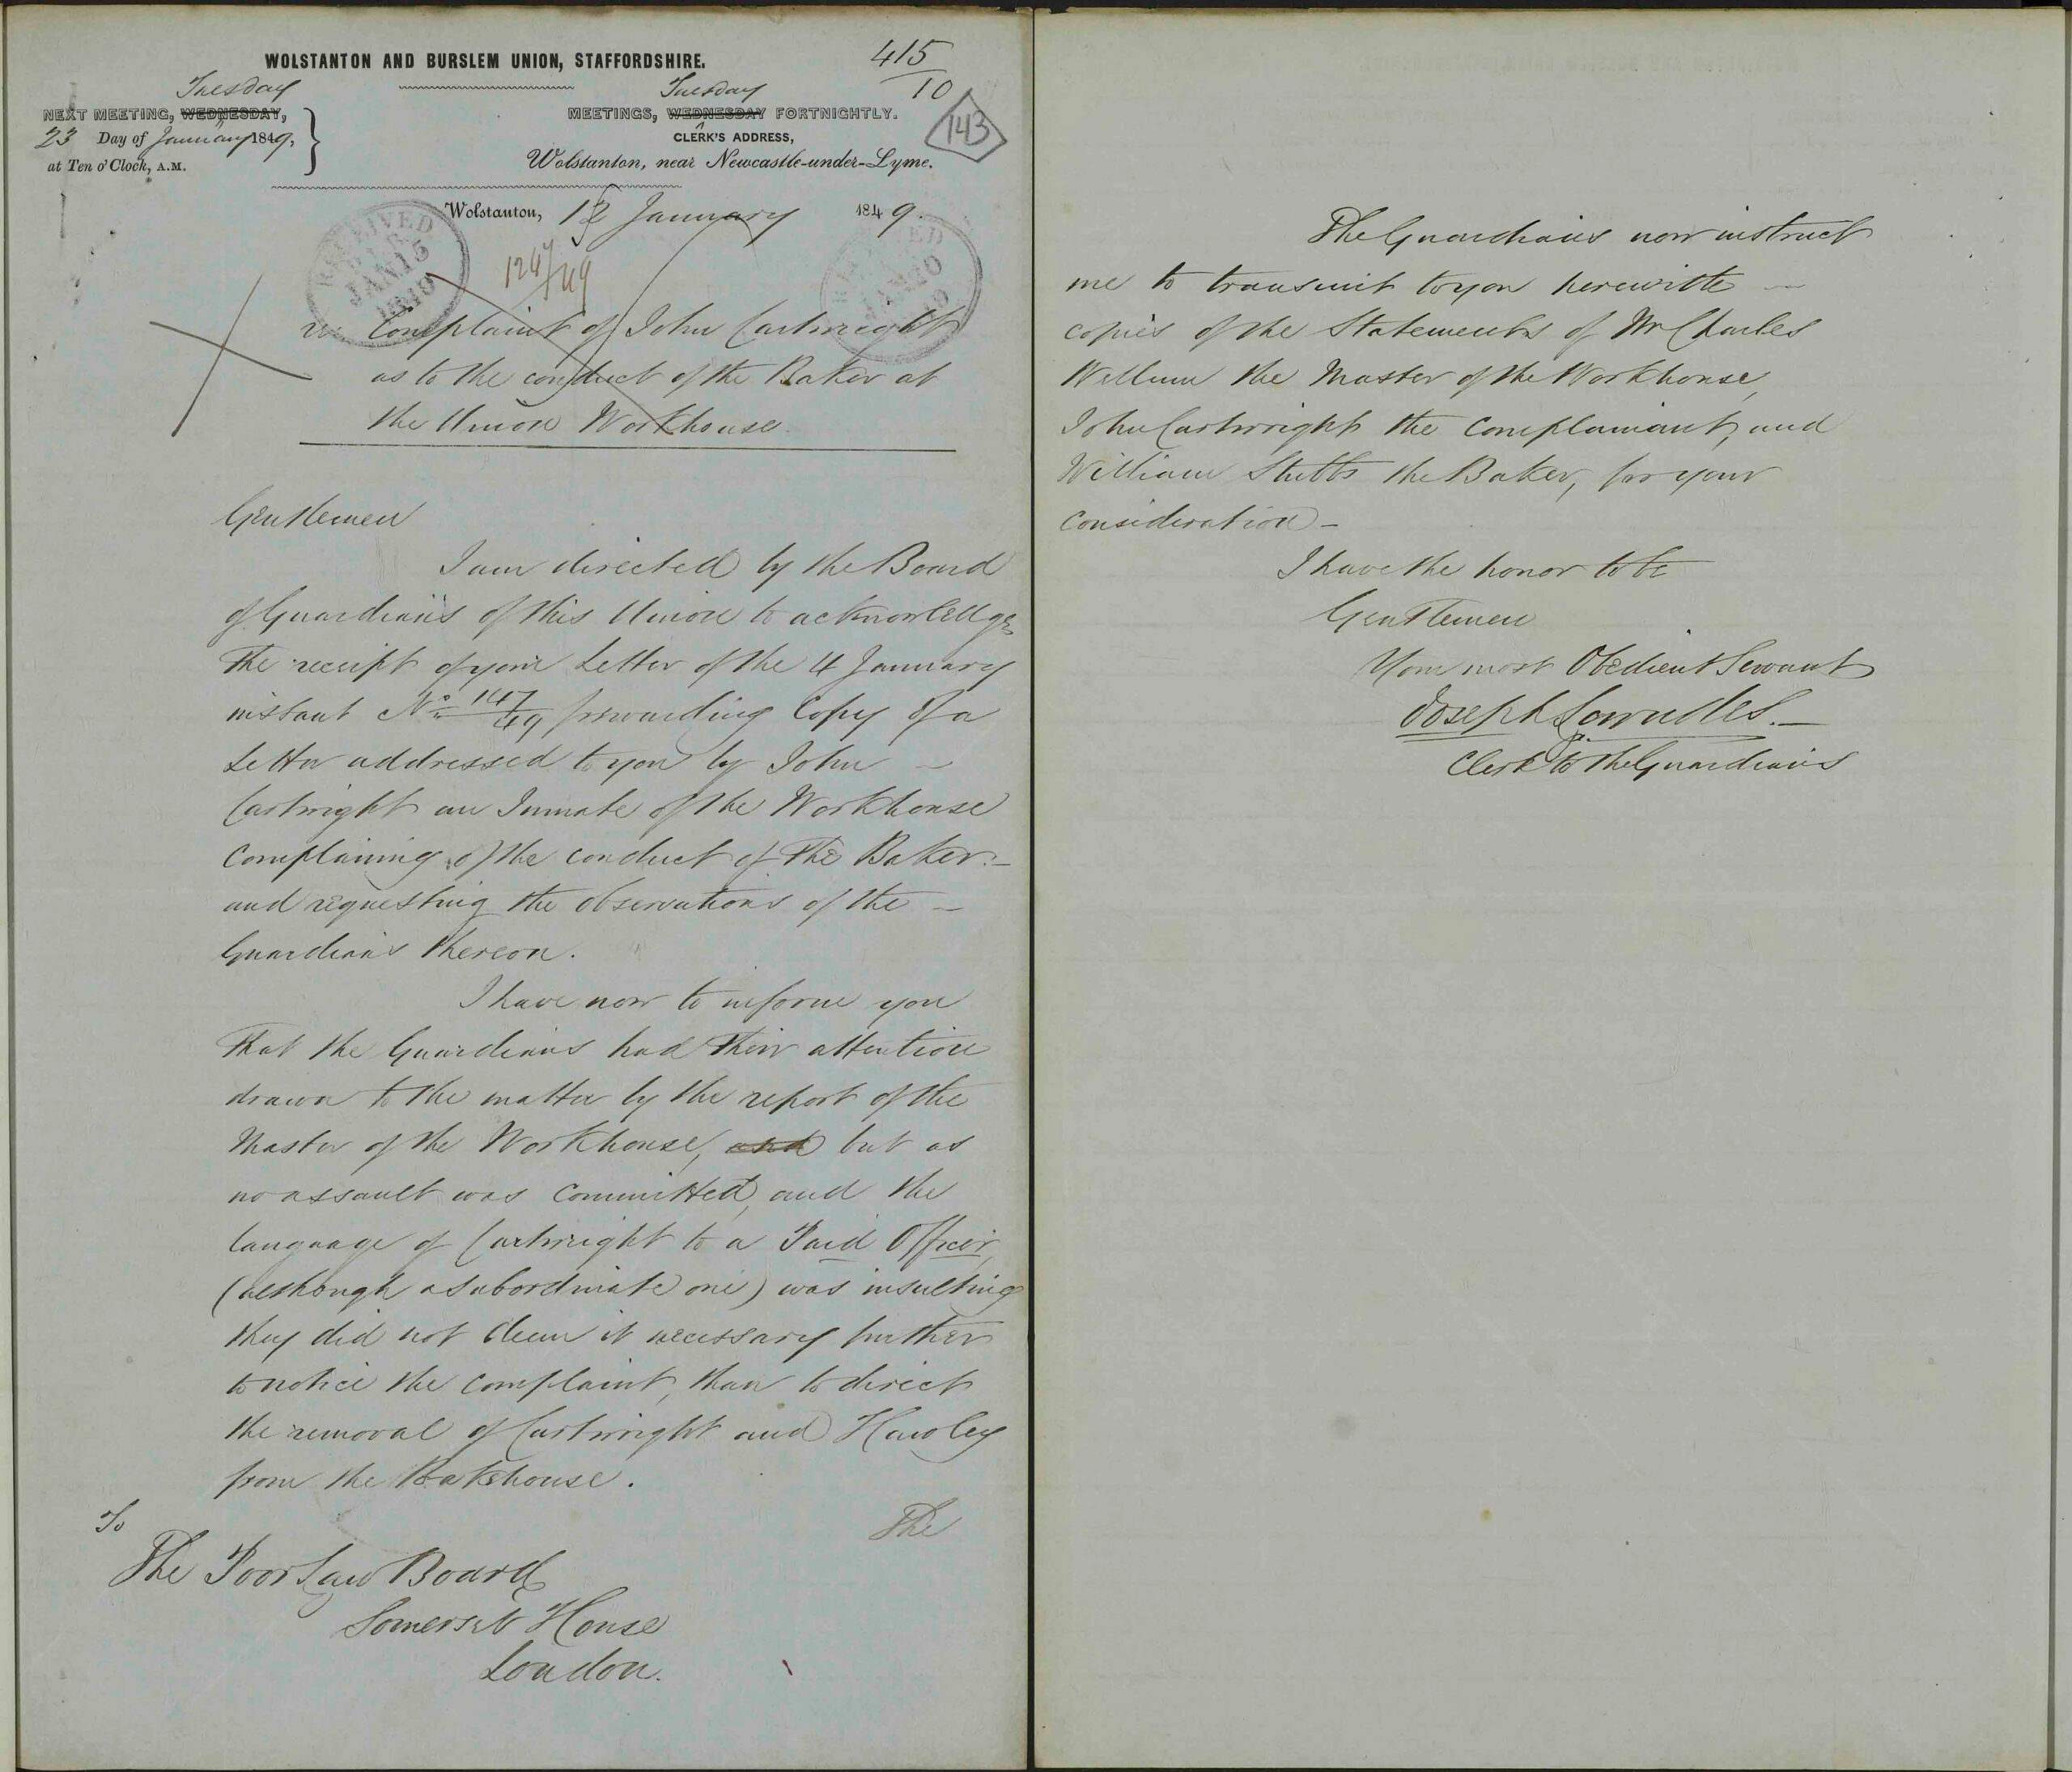 WOLSTANTON AND BURSLEM UNION, STAFFORDSHIRE.
415
10
143
Tuesday
NEXT MEETING, WEDNESDAY,
23 Day of January 1849,
at Ten o'Clock, A.M.
Tuesday
MEETINGS, WEDNESDAY FORTNIGHTLY.
CLERK'S ADDRESS,
Wolstanton, near Newcastle-under-Lyme.
Wolstanton, 12 January 1849.
RECEIVED
JAN 15
1849
re Complaint of John Cartwright
as to the conduct of the Baker at
the Union Workhouse.
Gentlemen
I am directed by the Board
of Guardians of this Union to acknowledge
the receipt of your Letter of the 4 January
instant No 147/49 forwarding Copy of a
Letter addressed to you by John –
Cartwright an Inmate of the Workhouse
Complaining of the conduct of the Baker –
and requesting the observations of the –
Guardians thereon.
I have now to inform you
that the Guardians had their attention
drawn to the matter by the report of the
Master of the Workhouse, and but as
no assault was committed, and the
language of Cartwright to a Paid Officer,
(although a subordinate one) was insulting
they did not deem it necessary further
to notice the complaint, than to direct
the removal of Cartwright and Hawley
from the Bakehouse.
The
To
The Poor Law Board
Somerset House
London.
The Guardians now instruct
me to transmit to you herewith –
copies of the Statements of Mr Charles
the Master of the Workhouse,
John Cartwright the Complainant, and
William Stubbs the Baker, for your
consideration –
I have the honor to be
Gentlemen
Your most Obedient Servant
Joseph Lowndes. –
Clerk to the Guardians